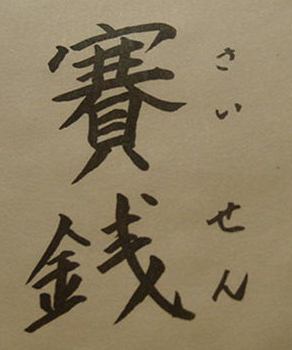 賽銭
さいせん